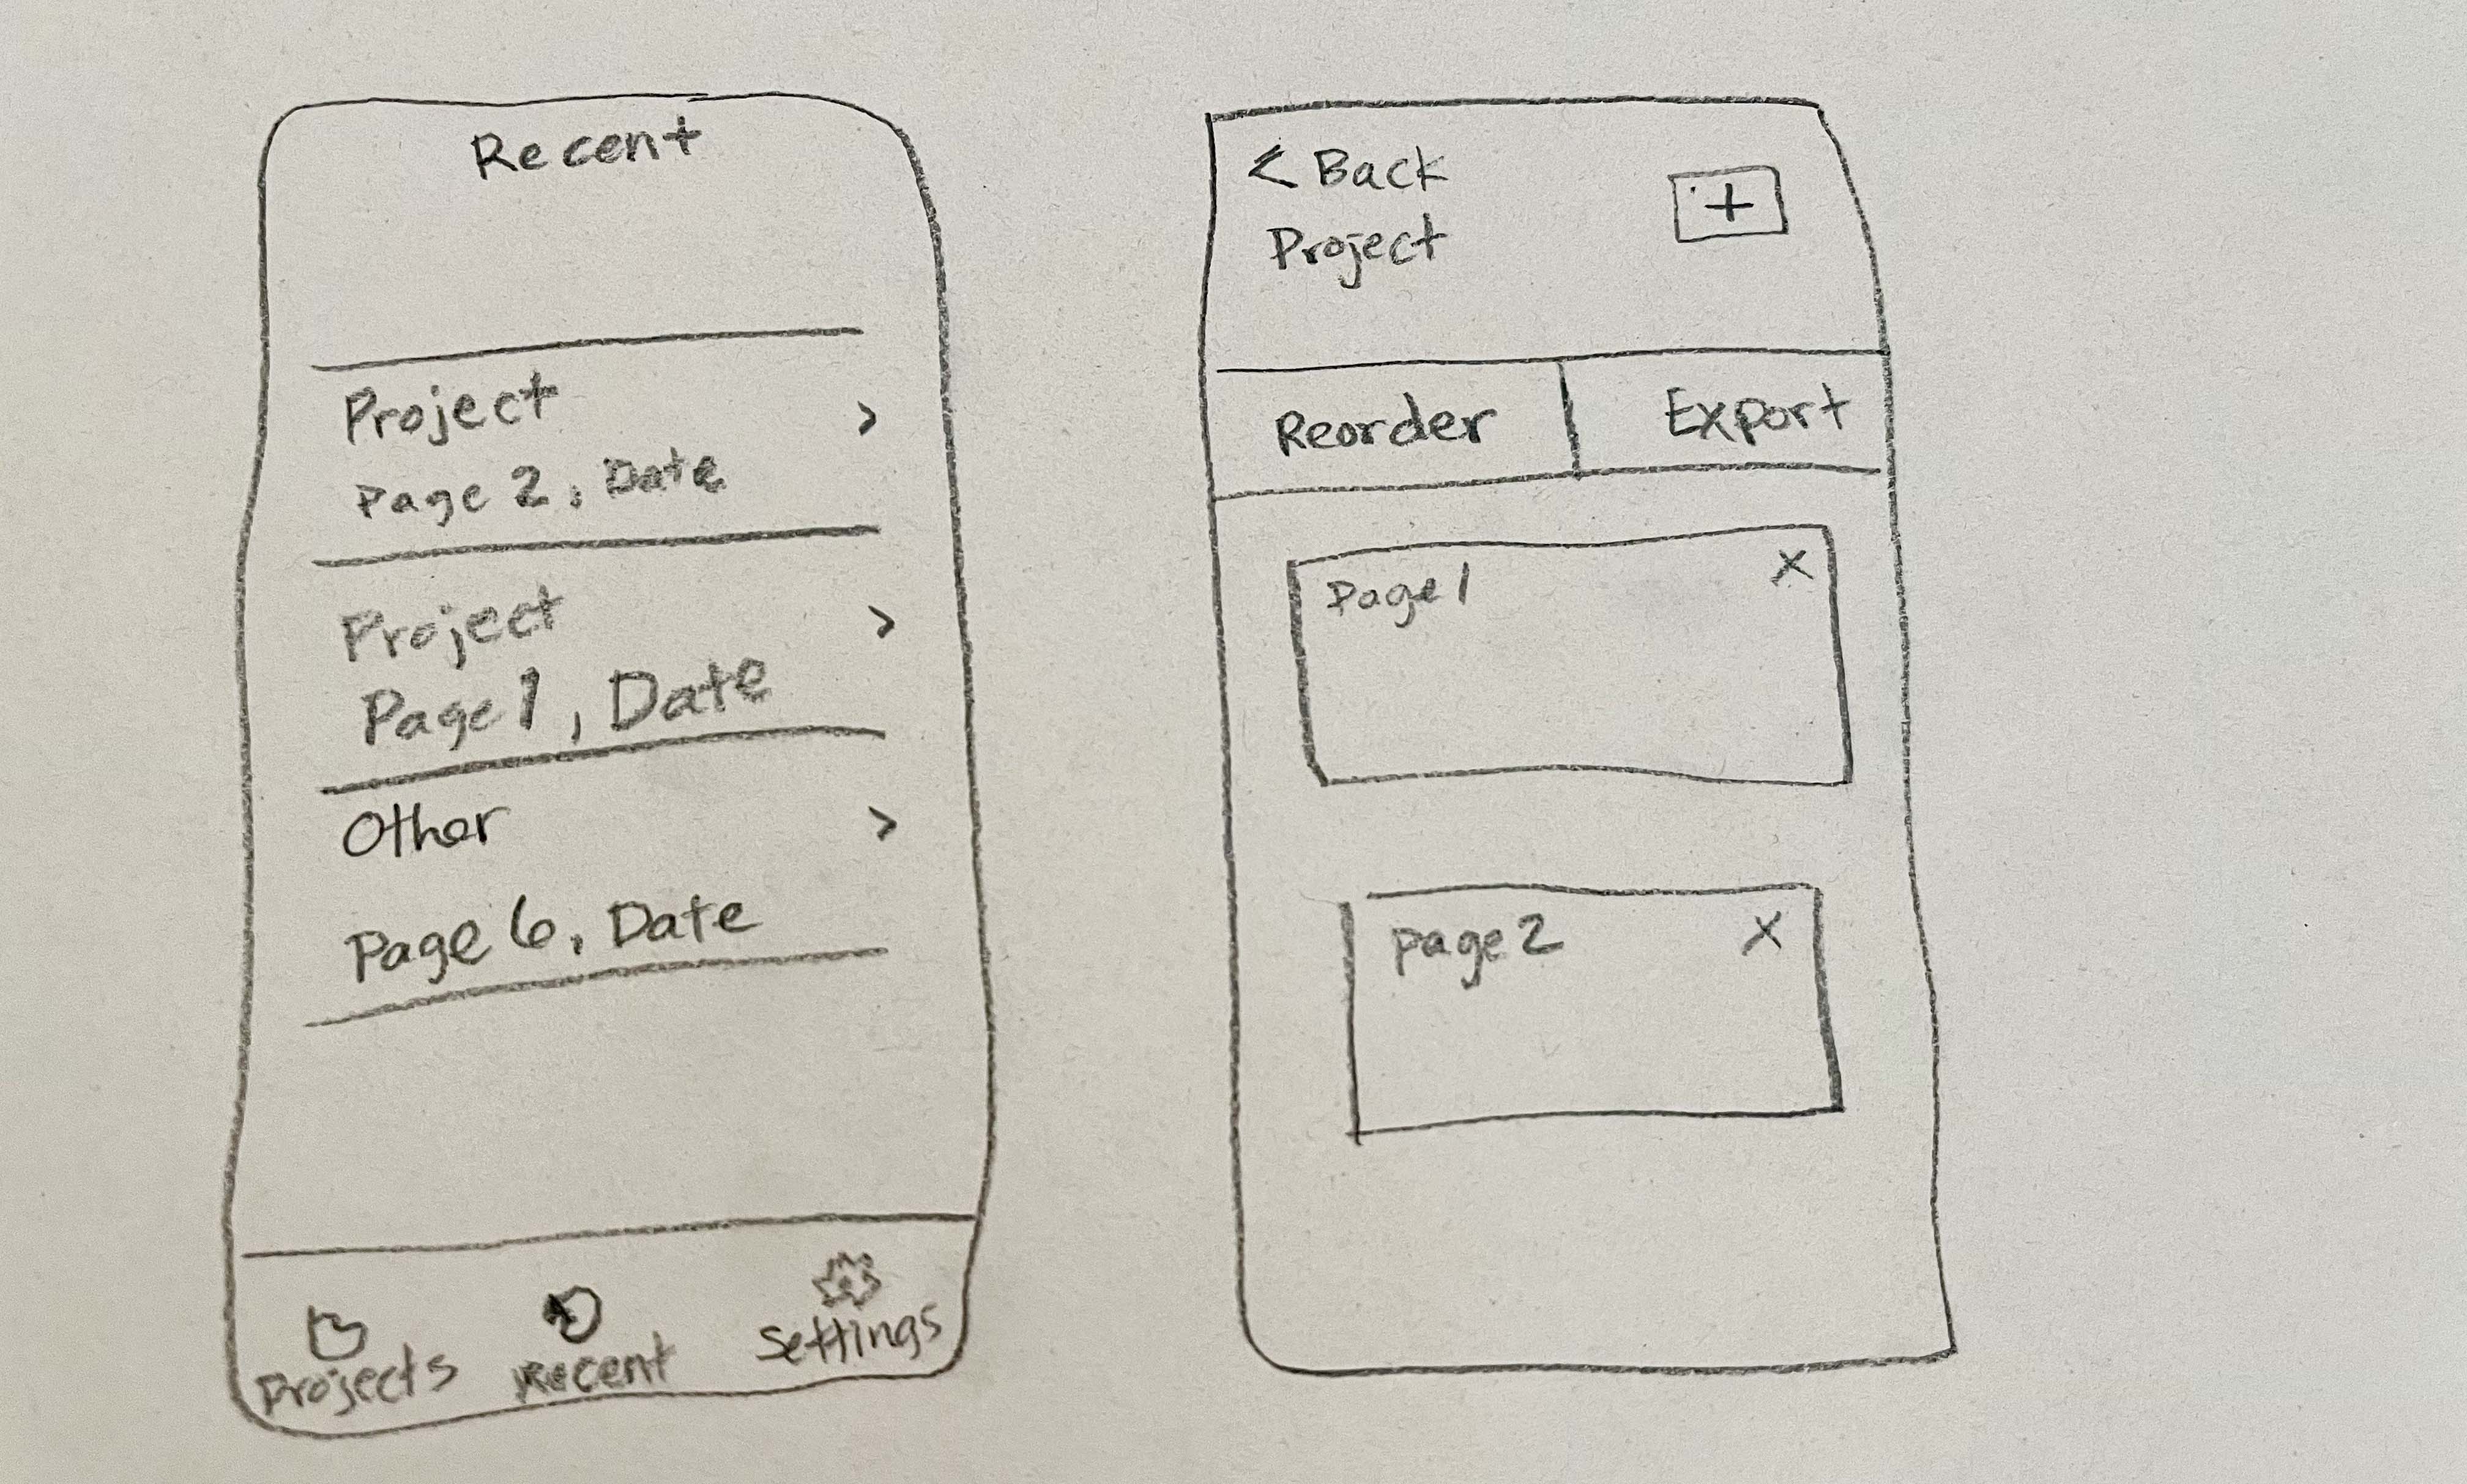 Recent
Project >
Page 2, Date
Project >
Page 1, Date
Other >
Page 6, Date
Projects Recent Settings
< Back
+
Project
Reorder Export
Page 1 X
Page 2 X